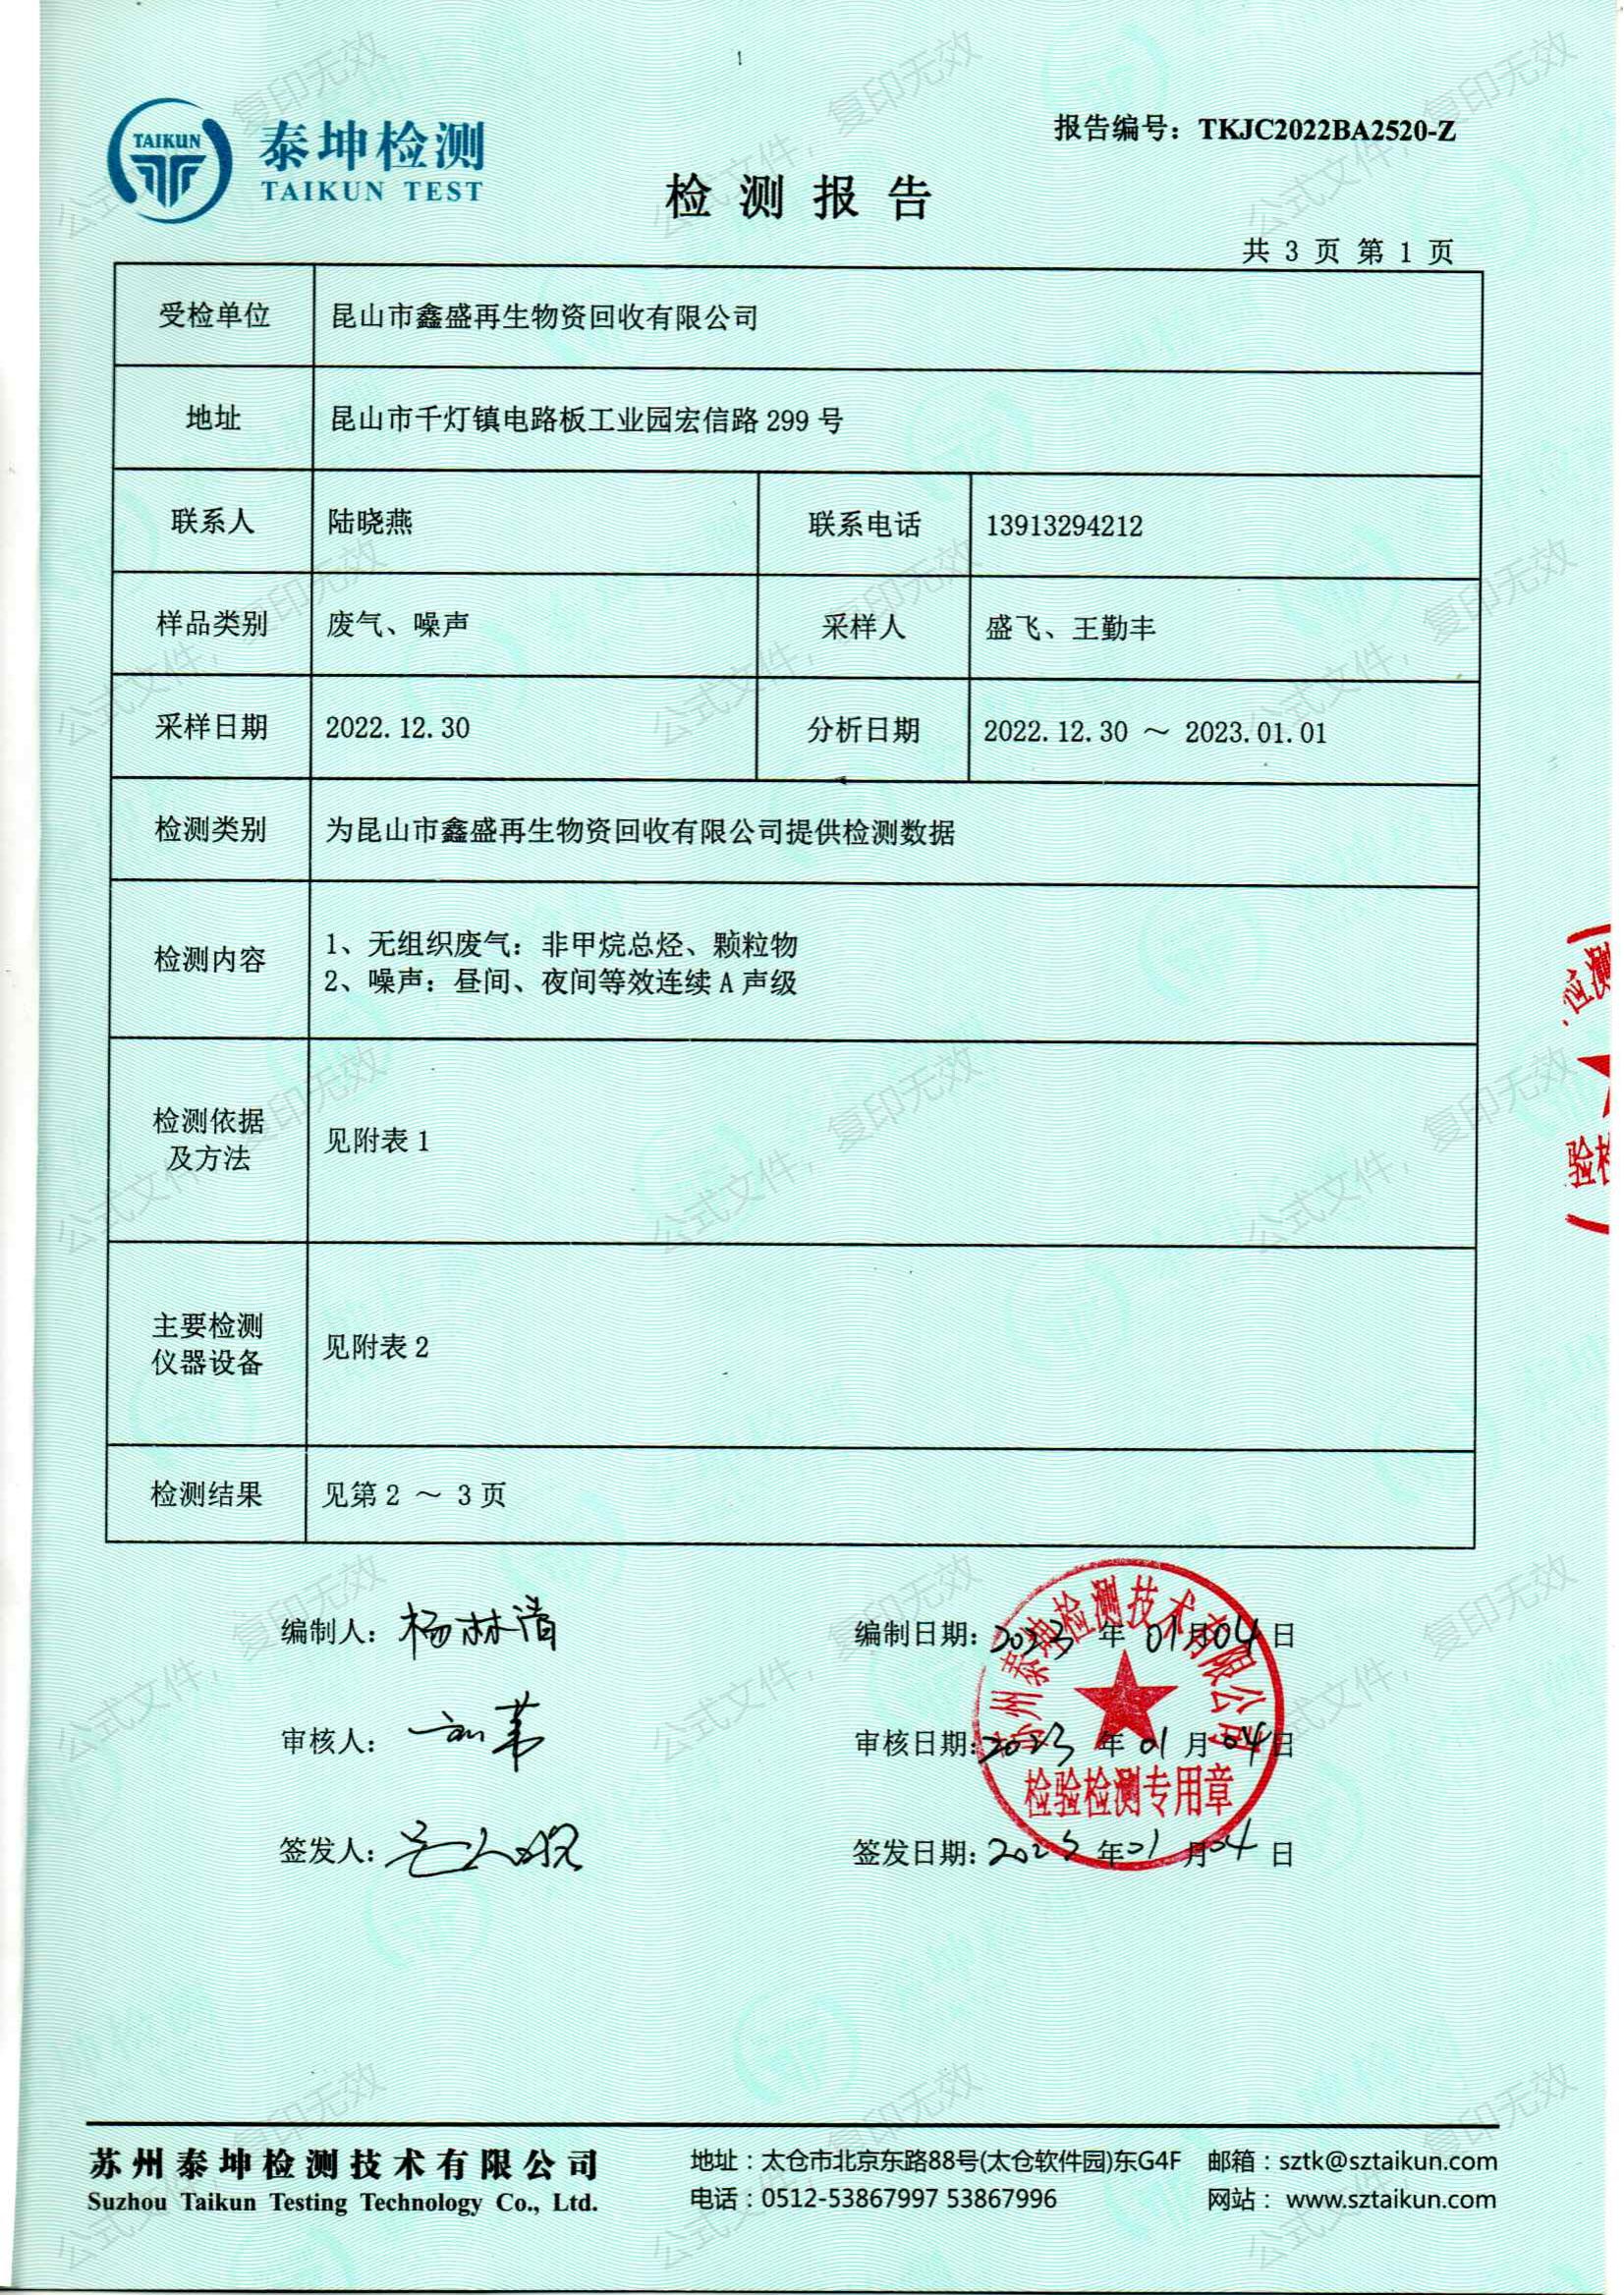 TAIKUN
泰坤检测
TAIKUN TEST
报告编号：TKJC2022BA2520-Z
检测报告
共 3 页 第 1 页
受检单位 昆山市鑫盛再生物资回收有限公司
地址 昆山市千灯镇电路板工业园宏信路 299 号
联系人 陆晓燕 联系电话 13913294212
样品类别 废气、噪声 采样人 盛飞、王勤丰
采样日期 2022.12.30 分析日期 2022.12.30 ～ 2023.01.01
检测类别 为昆山市鑫盛再生物资回收有限公司提供检测数据
检测内容
1、无组织废气：非甲烷总烃、颗粒物
2、噪声：昼间、夜间等效连续 A 声级
检测依据
及方法
见附表 1
主要检测
仪器设备
见附表 2
检测结果 见第 2 ～ 3 页
编制人：杨林清 编制日期：2023 年 01 月 04 日
审核人： 审核日期：2023 年 01 月 04 日
签发人： 签发日期：2023 年 01 月 04 日
苏州泰坤检测技术有限公司
检验检测专用章
检测
验检
公式文件，复印无效
苏州泰坤检测技术有限公司
Suzhou Taikun Testing Technology Co., Ltd.
地址：太仓市北京东路88号(太仓软件园)东G4F 邮箱：sztk@sztaikun.com
电话：0512-53867997 53867996 网站：www.sztaikun.com